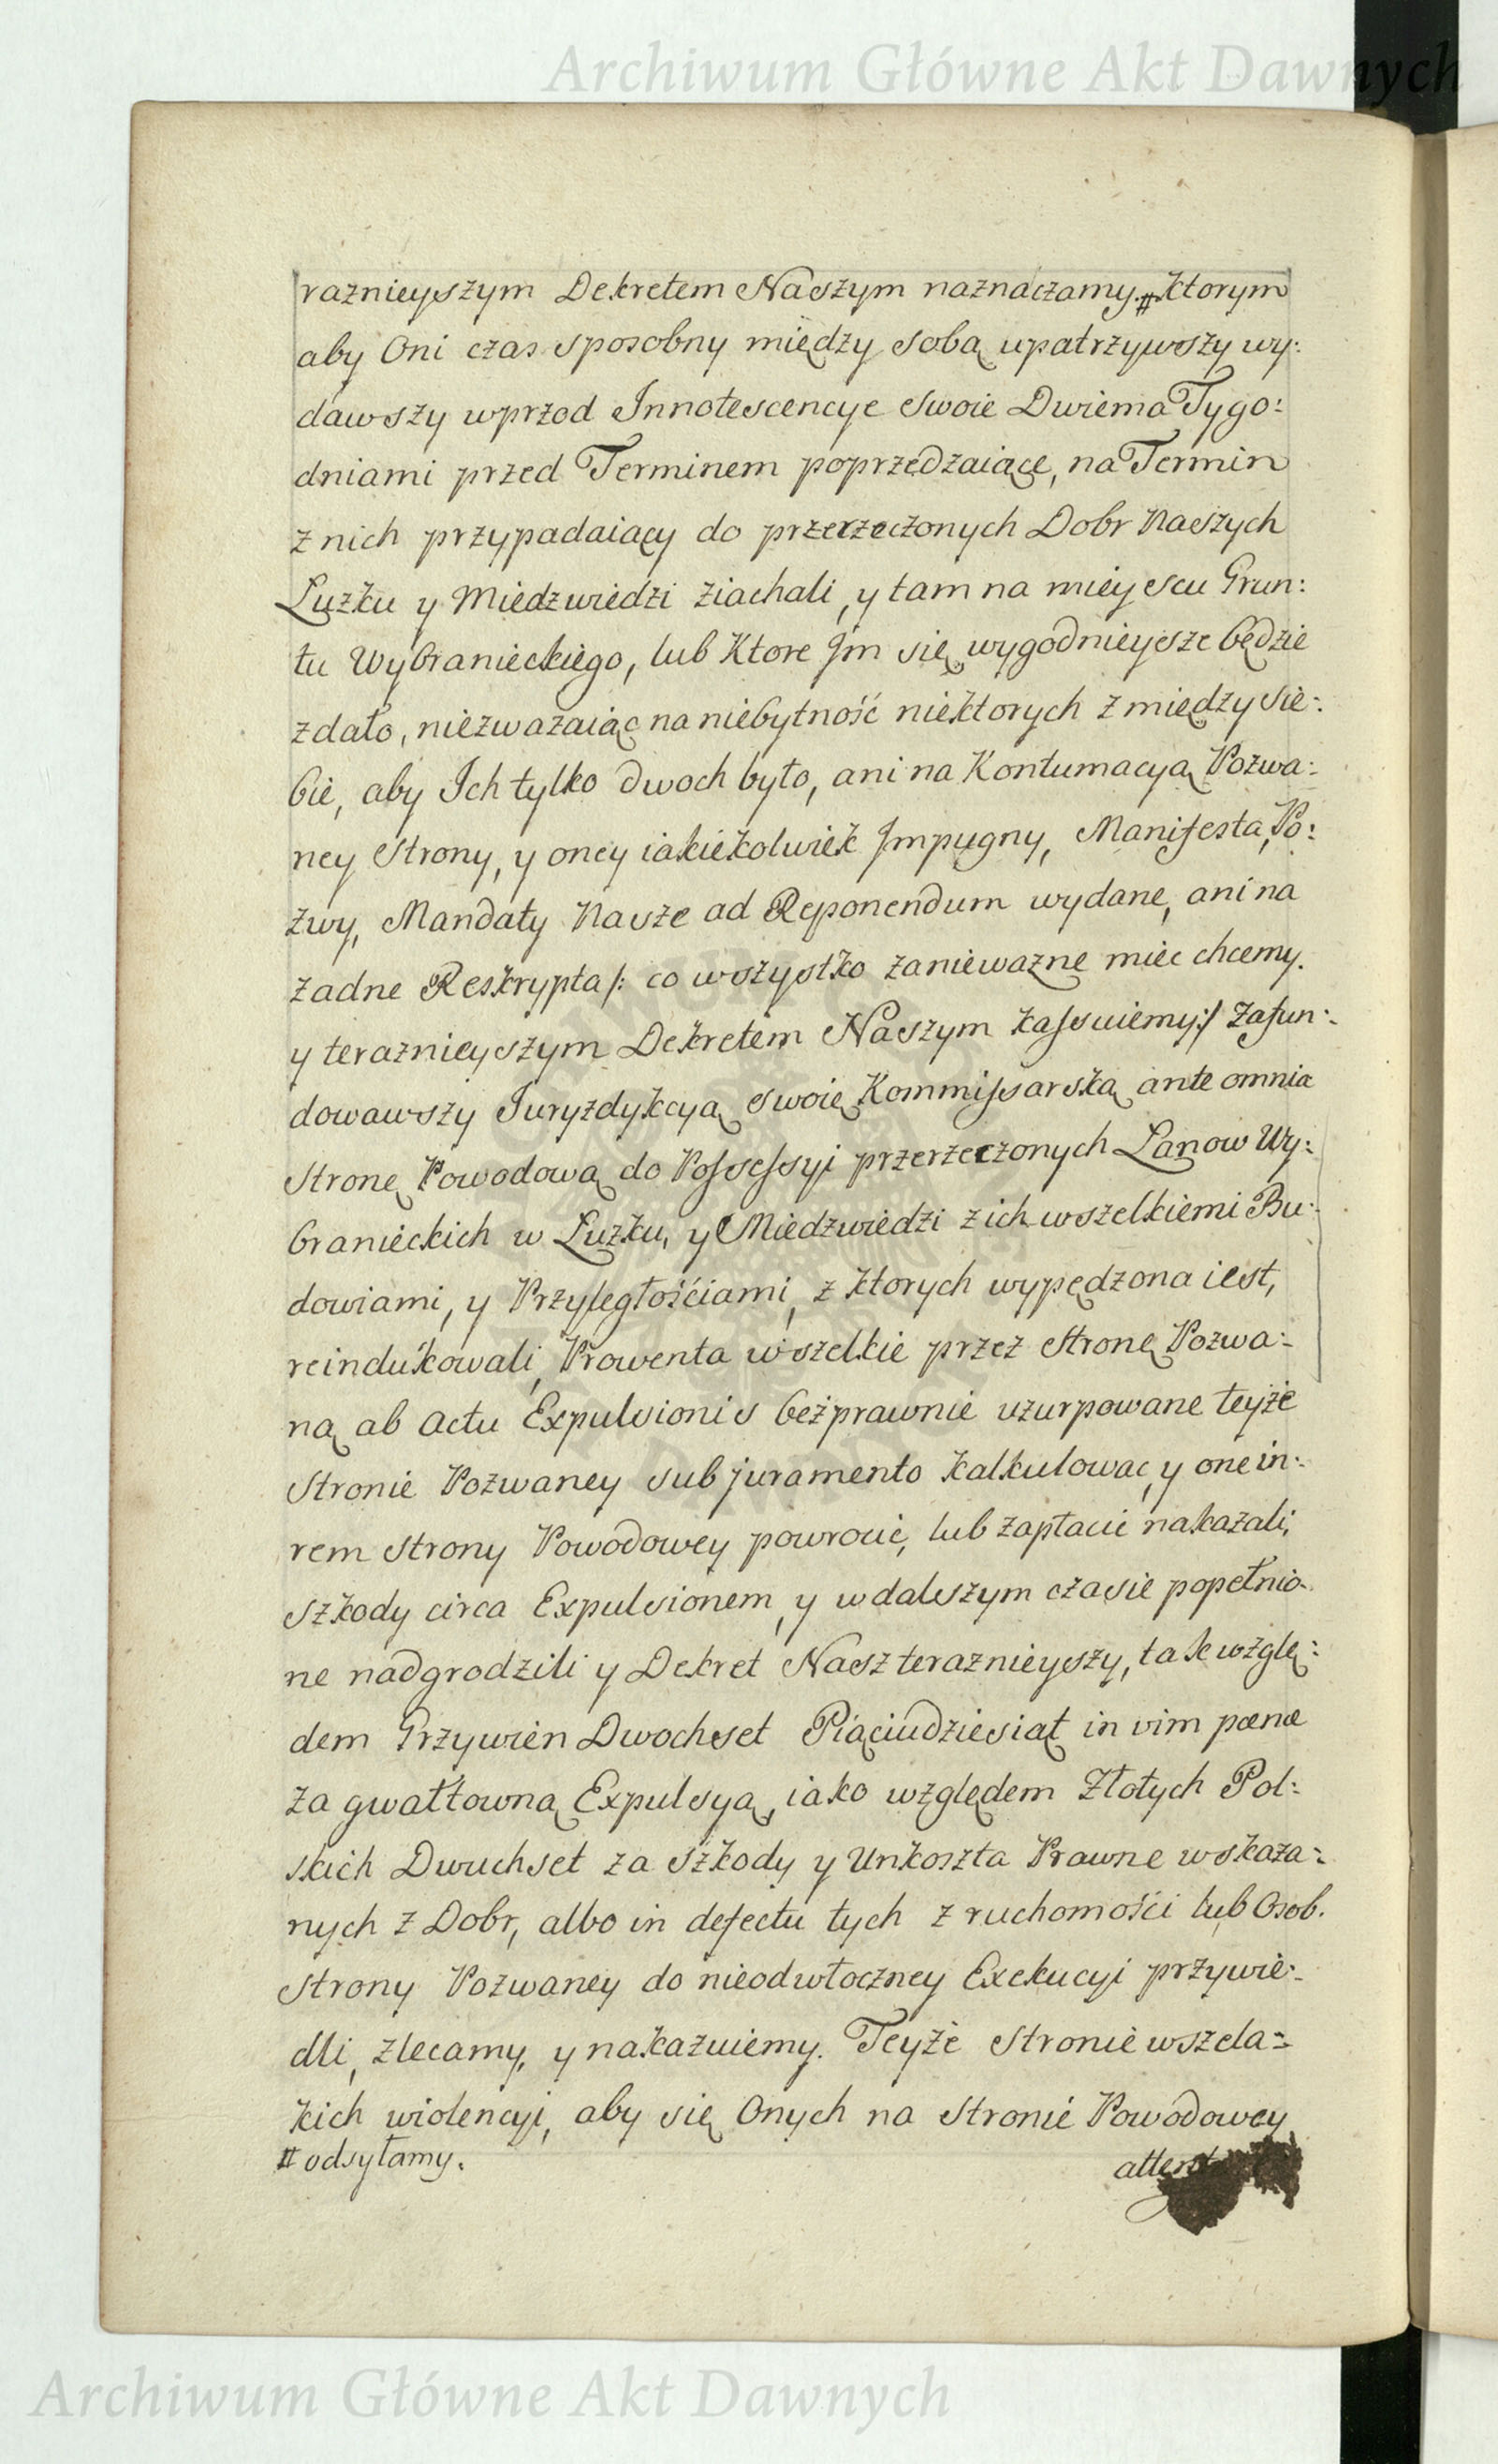 Archiwum Główne Akt Dawnych
raznieyszym Dekretem Naszym naznaczamy # ktorym
aby Oni czas sposobny między sobą upatrzywszy wy:
dawszy wprzod Innotescencye swoie Dwiema Tygo:
dniami przed Terminem poprzedzaiące, na Termin
z nich przypadaiący do przerzeczonych Dobr Naszych
Luzku y Miedzwiedzi ziachali, y tam na mieyscu Grun:
tu Wybranieckiego, lub Ktore Jm się wygodnieysze będzie
zdało, niezwazaiąc na niebytność niektorych z między sie:
bie, aby Ich tylko dwoch było, ani na Kontumacyą Pozwa:
ney Strony, y oney iakiekolwiek Jmpugny, Manifesta, Po:
zwy, Mandaty Nasze ad Reponendum wydane, ani na
zadne Reskrypta /: co wszystko zaniewazne miec chcemy.
y teraznieyszym Dekretem Naszym kassuiemy :/ Zafun:
dowawszy Juryzdykcyą swoię Kommissarską ante omnia
Stronę Powodową do Possessyi przerzeczonych Lanow Wy:
branieckich w Luzku, y Miedzwiedzi z ich wszelkiemi Bu:
dowiami, y Przyległościami, z ktorych wypędzona iest,
reindukowali, Prowenta wszelkie przez Stronę Pozwa:
ną ab actu Expulsionis bezprawnie uzurpowane teyże
Stronie Pozwaney sub juramento kalkulowac, y one in:
rem strony Powodowey powrocic, lub zapłacic nakazali,
szkody circa Expulsionem, y w dalszym czasie popełnio:
ne nadgrodzili y Dekret Nasz teraznieyszy, tak wzglę:
dem Grzywien Dwochset Piąciudziesiąt in vim pœnæ
za gwałtowną Expulsyą, iako względem Złotych Pol:
skich Dwuchset za szkody y Unkoszta Prawne wskaza:
nych z Dobr, albo in defectu tych z ruchomości lub Osob.
Strony Pozwaney do nieodwłoczney Exekucyi przywie:
dli, zlecamy, y nakazuiemy. Teyże Stronie wszela:
kich wiolencyi, aby się Onych na Stronie Powodowey
# odsyłamy.
Archiwum Główne Akt Dawnych